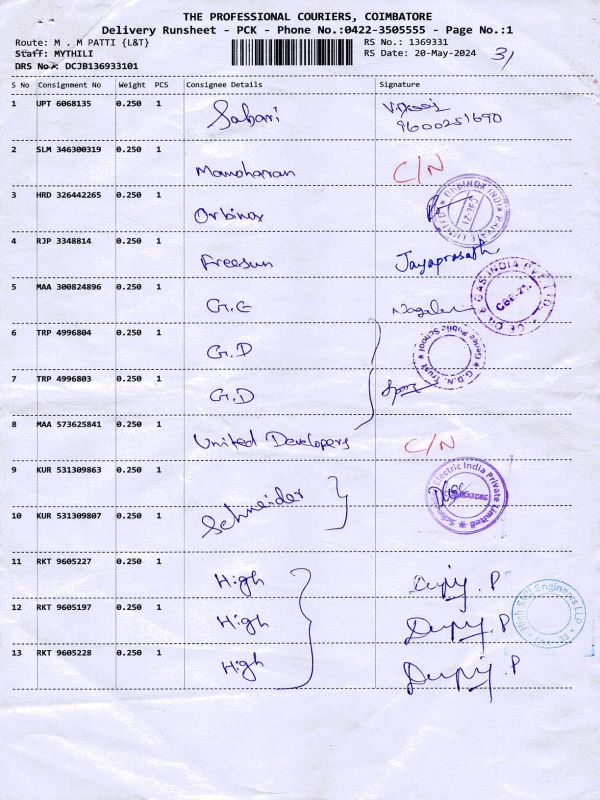 THE PROFESSIONAL COURIERS, COIMBATORE
Delivery Runsheet - PCK - Phone No.:0422-3505555 - Page No.:1
Route: M . M PATTI {L&T}
RS No.: 1369331
Staff: MYTHILI
RS Date: 20-May-2024
31
DRS No.: DCJB136933101
S No Consignment No Weight PCS Consignee Details Signature
1 UPT 6068135 0.250 1 Sabari
9600251690
2 SLM 346300319 0.250 1 Manoharan C/N
3 HRD 326442265 0.250 1 Orbinox
ORBINOX INDIA PRIVATE LIMITED
4 RJP 3348814 0.250 1 Freesun Jayaprasath
5 MAA 300824896 0.250 1 G.E
GE OIL & GAS INDIA PVT. LTD.
CBE-21.
6 TRP 4996804 0.250 1 G.D
G.D.N. Trust
Public School
7 TRP 4996803 0.250 1 G.D
8 MAA 573625841 0.250 1 United Developers C/N
9 KUR 531309863 0.250 1 Schneider
Electric India Private Limited
COIMBATORE
10 KUR 531309807 0.250 1
11 RKT 9605227 0.250 1 High
12 RKT 9605197 0.250 1 High
13 RKT 9605228 0.250 1 High